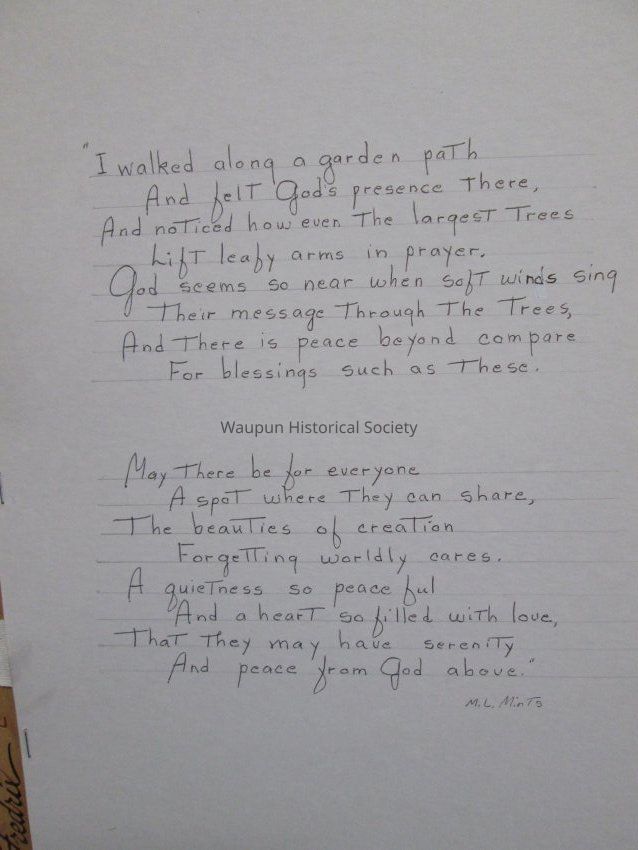 "I walked along a garden path
And felt God's presence there,
And noticed how even the largest trees
Lift leafy arms in prayer.
God seems so near when soft winds sing
Their message through the trees,
And there is peace beyond compare
For blessings such as these.
Waupun Historical Society
May there be for everyone
A spot where they can share,
The beauties of creation
Forgetting worldly cares.
A quietness so peaceful
And a heart so filled with love,
That they may have serenity
And peace from God above."
M.L. Mints
fredrix